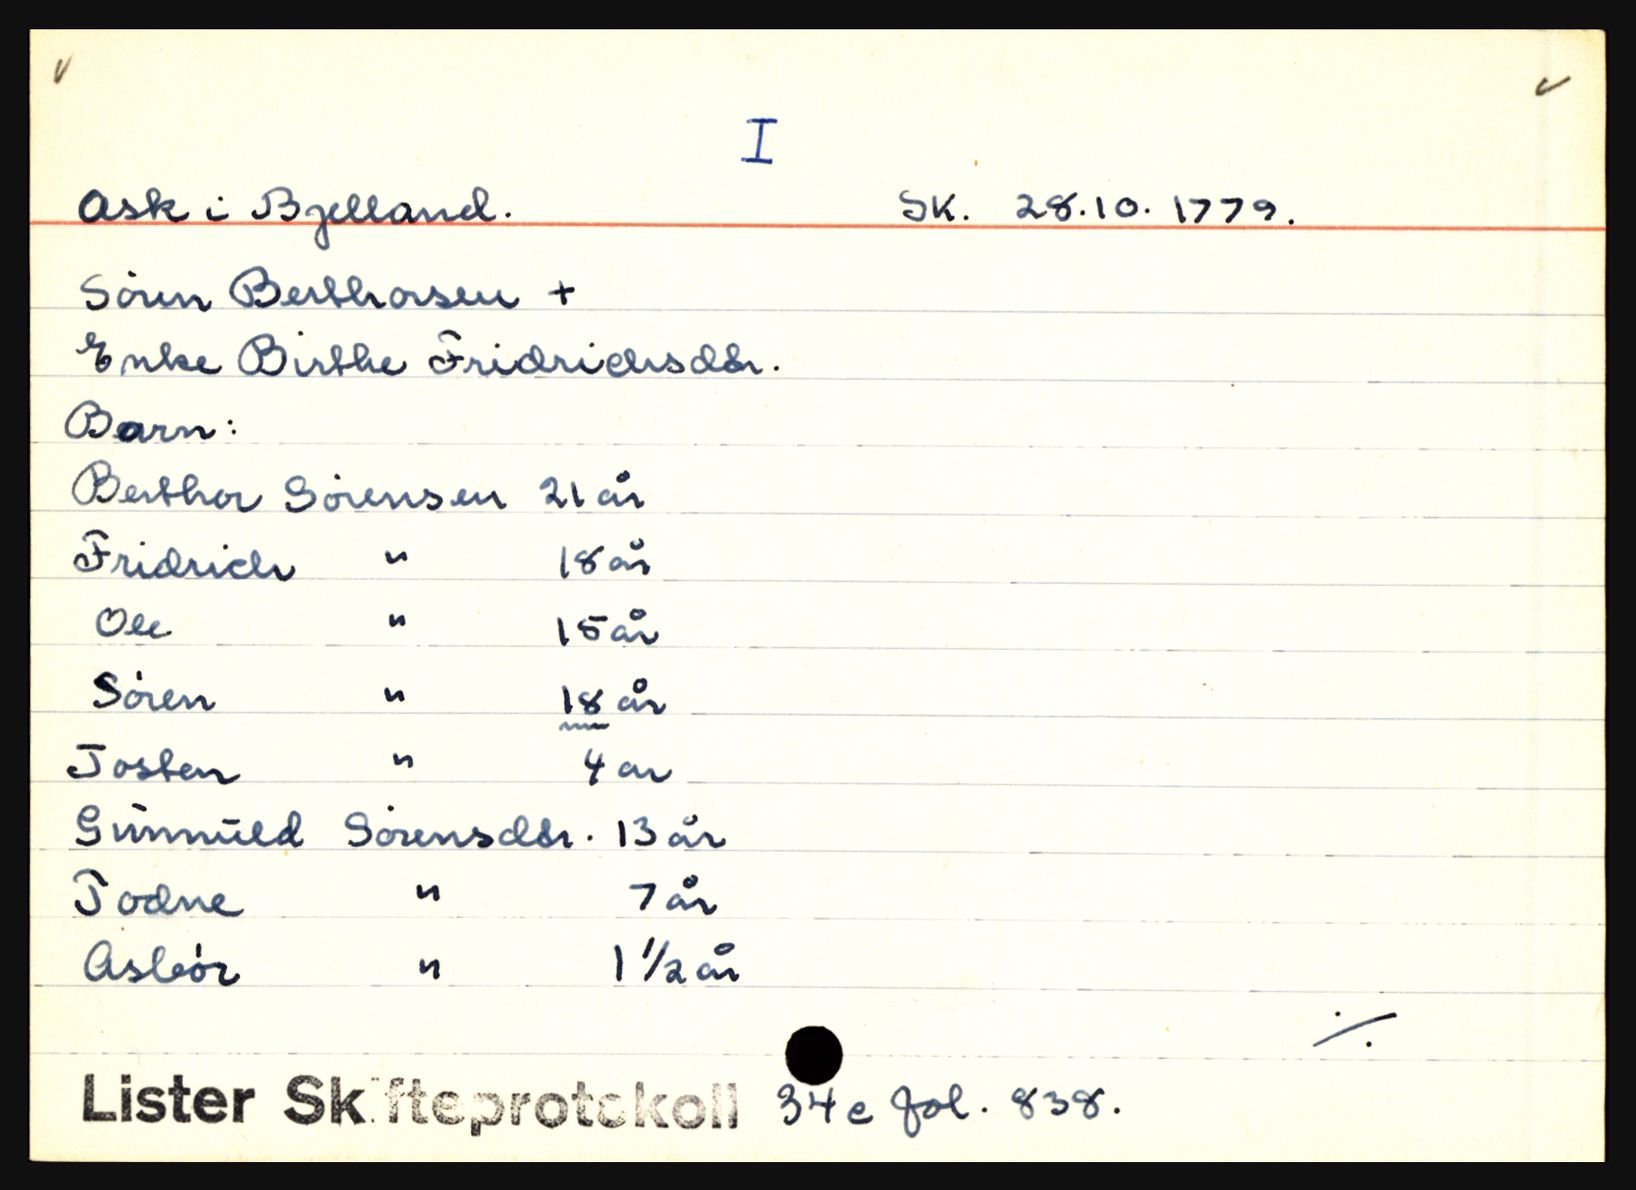 I
Ask i Bjelland. SK. 28.10. 1779.
Sören Berthorsen +
Enke Birthe Fridrichsdtr.
Barn:
Berthor Sörensen 21 år
Fridrich " 18 år
Ole " 15 år
Sören " 18 år
Tosten " 4 år
Gunnuld Sörensdtr. 13 år
Todne " 7 år
Asbör " 1 1/2 år
./.
Lister Skifteprotokoll 34c fol. 838.